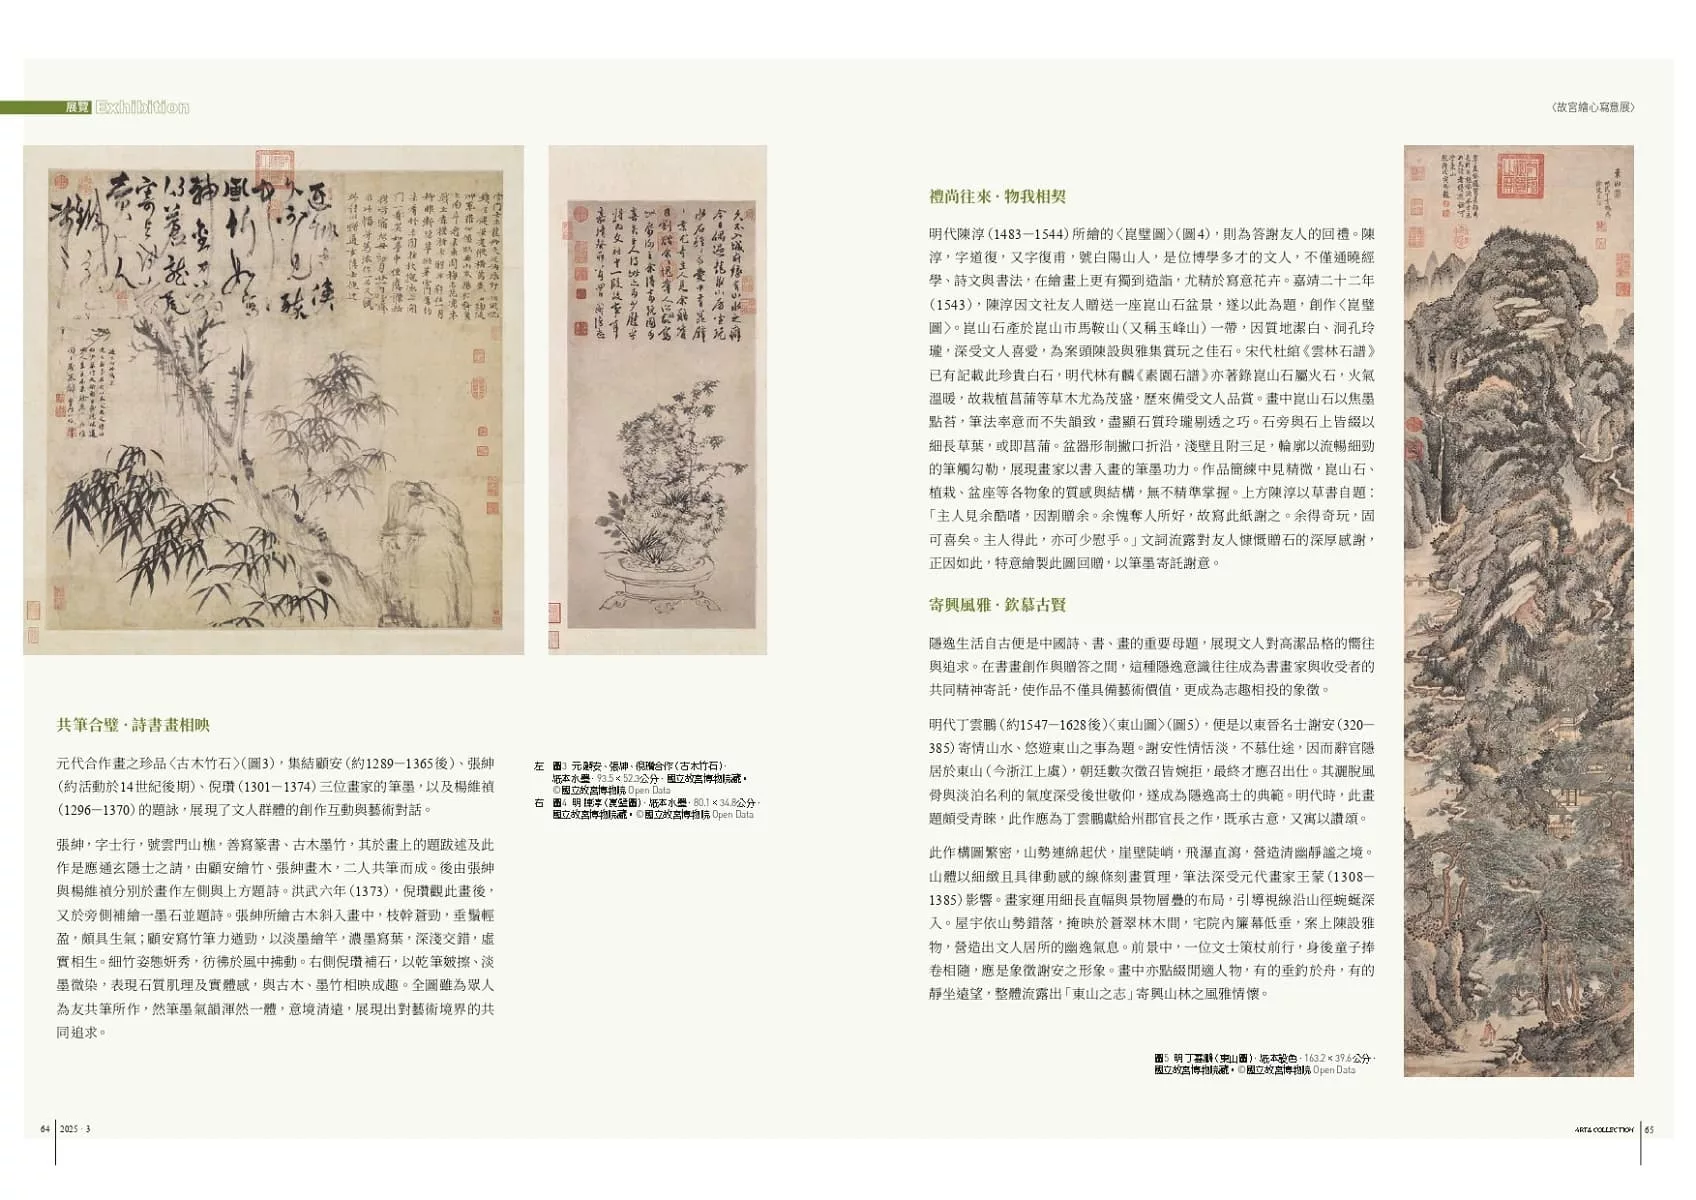 展覽 Exhibition
〈故宮繪心寫意展〉
共筆合璧·詩書畫相映
元代合作畫之珍品〈古木竹石〉（圖3），集結顧安（約1289－1365後）、張紳
（約活動於14世紀後期）、倪瓚（1301－1374）三位畫家的筆墨，以及楊維禎
（1296－1370）的題詠，展現了文人群體的創作互動與藝術對話。
張紳，字士行，號雲門山樵，善寫篆書、古木墨竹，其於畫上的題跋述及此
作是應通玄隱士之請，由顧安繪竹、張紳畫木，二人共筆而成。後由張紳
與楊維禎分別於畫作左側與上方題詩。洪武六年（1373），倪瓚觀此畫後，
又於旁側補繪一墨石並題詩。張紳所繪古木斜入畫中，枝幹蒼勁，垂鬚輕
盈，頗具生氣；顧安寫竹筆力遒勁，以淡墨繪竿，濃墨寫葉，深淺交錯，虛
實相生。細竹姿態妍秀，彷彿於風中拂動。右側倪瓚補石，以乾筆皴擦、淡
墨微染，表現石質肌理及實體感，與古木、墨竹相映成趣。全圖雖為眾人
為友共筆所作，然筆墨氣韻渾然一體，意境清遠，展現出對藝術境界的共
同追求。
左 圖3 元 顧安、張紳、倪瓚合作〈古木竹石〉，
紙本水墨，93.5×52.3公分，國立故宮博物院藏。
©國立故宮博物院 Open Data
右 圖4 明 陳淳〈崑璧圖〉，紙本水墨，80.1×34.8公分，
國立故宮博物院藏。©國立故宮博物院 Open Data
64 2025·3
禮尚往來·物我相契
明代陳淳（1483－1544）所繪的〈崑璧圖〉（圖4），則為答謝友人的回禮。陳
淳，字道復，又字復甫，號白陽山人，是位博學多才的文人，不僅通曉經
學、詩文與書法，在繪畫上更有獨到造詣，尤精於寫意花卉。嘉靖二十二年
（1543），陳淳因文社友人贈送一座崑山石盆景，遂以此為題，創作〈崑璧
圖〉。崑山石產於崑山市馬鞍山（又稱玉峰山）一帶，因質地潔白、洞孔玲
瓏，深受文人喜愛，為案頭陳設與雅集賞玩之佳石。宋代杜綰《雲林石譜》
已有記載此珍貴白石，明代林有麟《素園石譜》亦著錄崑山石屬火石，火氣
溫暖，故栽植菖蒲等草木尤為茂盛，歷來備受文人品賞。畫中崑山石以焦墨
點苔，筆法率意而不失韻致，盡顯石質玲瓏剔透之巧。石旁與石上皆綴以
細長草葉，或即菖蒲。盆器形制撇口折沿，淺壁且附三足，輪廓以流暢細勁
的筆觸勾勒，展現畫家以書入畫的筆墨功力。作品簡練中見精微，崑山石、
植栽、盆座等各物象的質感與結構，無不精準掌握。上方陳淳以草書自題：
「主人見余酷嗜，因割贈余。余愧奪人所好，故寫此紙謝之。余得奇玩，固
可喜矣。主人得此，亦可少慰乎。」文詞流露對友人慷慨贈石的深厚感謝，
正因如此，特意繪製此圖回贈，以筆墨寄託謝意。
寄興風雅·欽慕古賢
隱逸生活自古便是中國詩、書、畫的重要母題，展現文人對高潔品格的嚮往
與追求。在書畫創作與贈答之間，這種隱逸意識往往成為書畫家與收受者的
共同精神寄託，使作品不僅具備藝術價值，更成為志趣相投的象徵。
明代丁雲鵬（約1547－1628後）〈東山圖〉（圖5），便是以東晉名士謝安（320－
385）寄情山水、悠遊東山之事為題。謝安性情恬淡，不慕仕途，因而辭官隱
居於東山（今浙江上虞），朝廷數次徵召皆婉拒，最終才應召出仕。其灑脫風
骨與淡泊名利的氣度深受後世敬仰，遂成為隱逸高士的典範。明代時，此畫
題頗受青睞，此作應為丁雲鵬獻給州郡官長之作，既承古意，又寓以讚頌。
此作構圖繁密，山勢連綿起伏，崖壁陡峭，飛瀑直瀉，營造清幽靜謐之境。
山體以細緻且具律動感的線條刻畫質理，筆法深受元代畫家王蒙（1308－
1385）影響。畫家運用細長直幅與景物層疊的布局，引導視線沿山徑蜿蜒深
入。屋宇依山勢錯落，掩映於蒼翠林木間，宅院內簾幕低垂，案上陳設雅
物，營造出文人居所的幽逸氣息。前景中，一位文士策杖前行，身後童子捧
卷相隨，應是象徵謝安之形象。畫中亦點綴閒適人物，有的垂釣於舟，有的
靜坐遠望，整體流露出「東山之志」寄興山林之風雅情懷。
圖5 明 丁雲鵬〈東山圖〉，紙本設色，163.2×39.6公分，
國立故宮博物院藏。©國立故宮博物院 Open Data
ART & COLLECTION 65